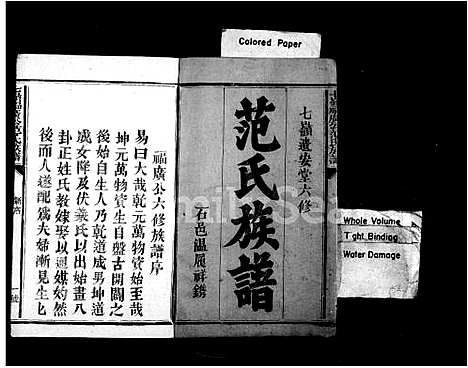 Colored Paper
七嶺遺安堂六修
范氏族譜
石邑溫履祥鐫
Whole Volume
Tight Binding
Water Damage
福廣公六修族譜序
易曰大哉乾元萬物資始至哉
坤元萬物資生自盤古開闢之
後始自生人乃乾道成男坤道
成女降及伏羲氏以出始畫八
卦正姓氏教嫁娶以通媒妁然
後而人遂配為夫婦漸見生匕